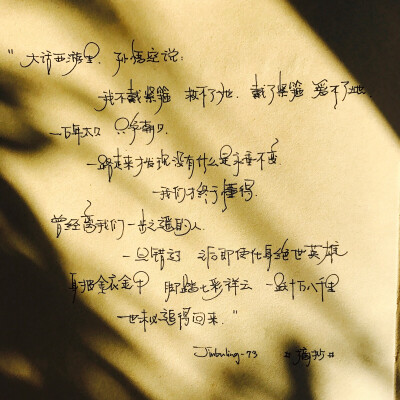 "大话西游里，孙悟空说：
我不戴紧箍 救不了她，戴了紧箍 爱不了她。
五百年太久 只争朝夕
一路走来才发现没有什么是永垂不变
我们才终于懂得，
曾经离我们一步之遥的人
一旦错过 之后即使化身绝世英雄
身披金衣金甲 脚踏七彩祥云 一跃十万八千里
也未必追得回来。"
Jinbuling-73 #摘抄#